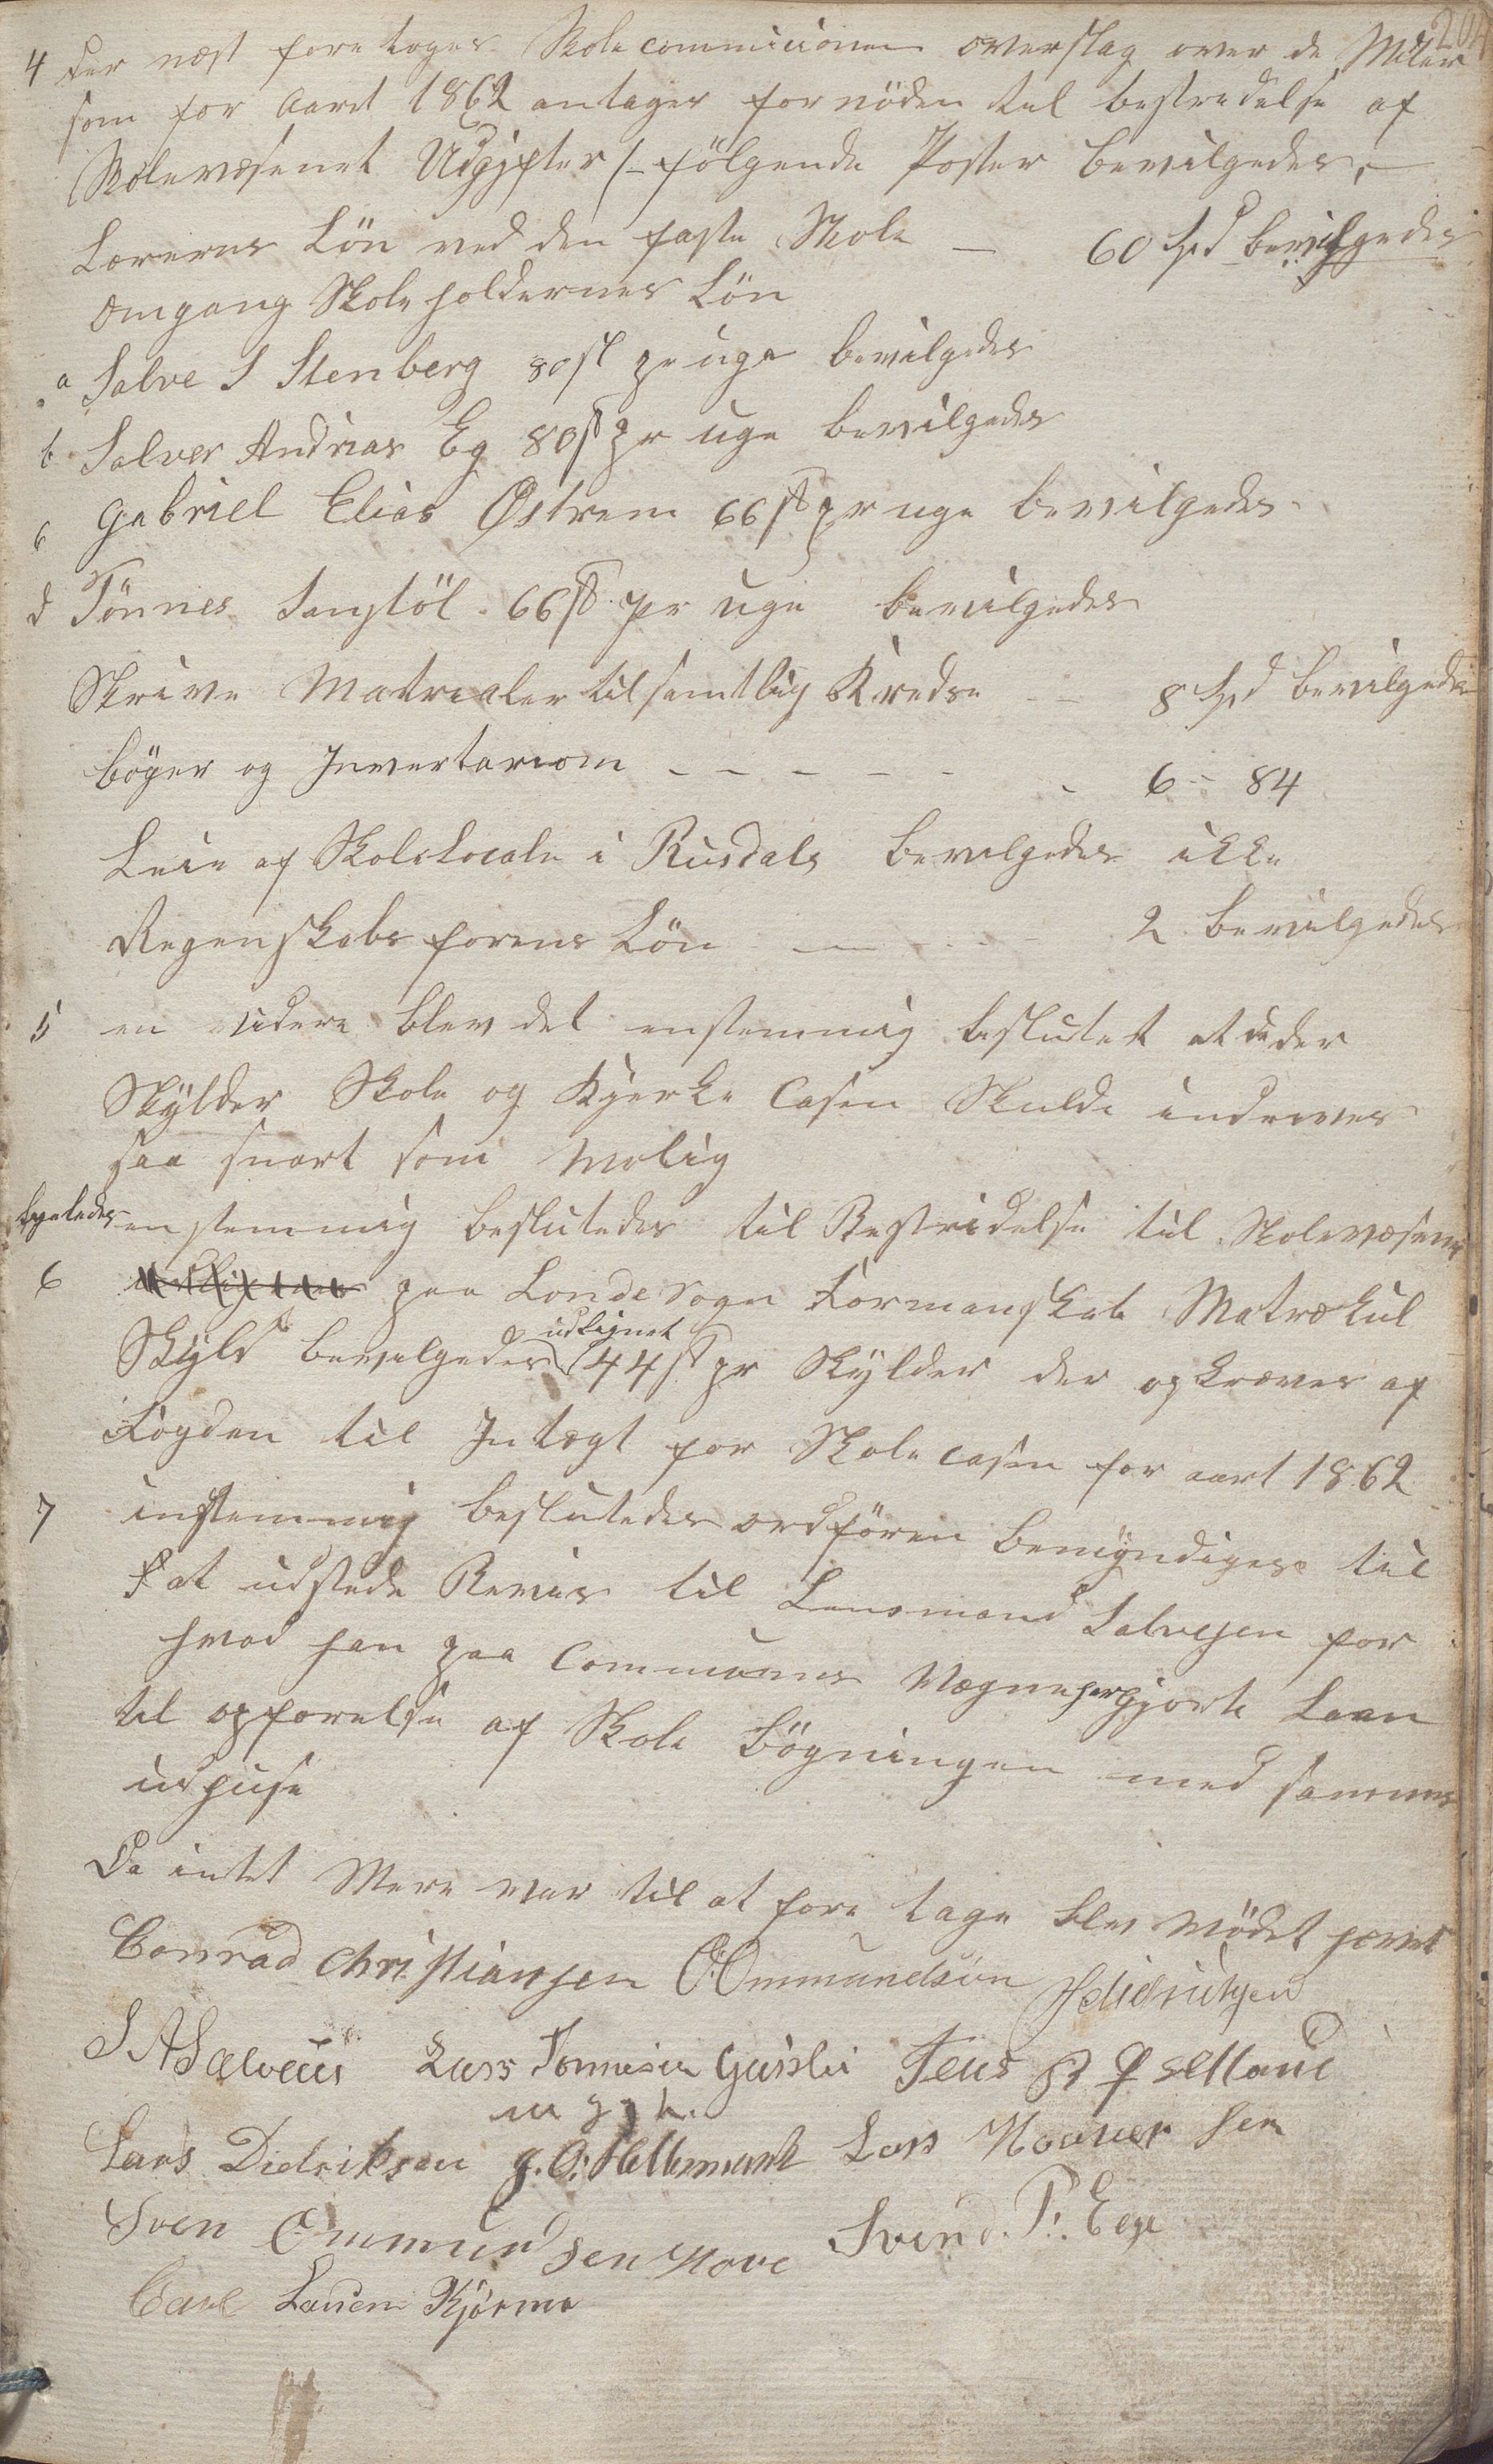 204
4 der næst foretoges Skolecommicionen overslag over de Midler
som for Aaret 1862 antages fornöden tel bestredelse af
Skolevæsenet Udgifter /- fölgende Poster bevilgedes,-
Lærerens Lön ved den faste Skole — 60 Spd bevilgedes
Omgang Skoleholdernes Lön
a Salve S Stenberg 80 s pr uge bevilgedes
b Salver Andreas Eg 80 s pr uge bevilgedes
c Gabriel Elias Østrem 66 s pr uge bevilgedes
d Tönnes 66 s pr uge bevilgedes
Skrive Matrialer til samtlig Kredse — 8 Spd bevilgedes
böger og Inventariom - - - - - - 6 - 84
Leie af Skolelocale i Rusdals bevelgedes ikke
Regenskabsførens Lön — 2 bevilgedes
5 en videre blev det enstemmig besluttet at de der
Skylder Skole og Kjerke Casen Skulde indreves
saa snart som Molig
Ligeledes enstemmig besluttedes til Bestridelse til Skolevæsenet
6 paa Londe Sogn Formanskab Matrækul
Skyld bevelgedes udlignet 44 s pr Skylder der opkræves af
Fogden til Intægt for Skole casen for aaret 1862
7 instemmig besluttedes ordfören bemyndiges til
at udstede Beviis til Lensmand Salvesen for
hvad han paa Communens Vægne har gjorte Laan
til opförelse af Skole bögningen med sammes
udhuse
Da intet Mere var til at fore tage blev Mödet hævet
Conrad Christiansen O: Ommundsen Fdidriksen
S A Salvesen Lars Tönnesen Guislie Teus Selland
m f p
Lars Didriksen J. O: Hellemark Lars Hansen
Sven Ommundsen Hove Svend. P: Ege
Carl Larsen Kjörme